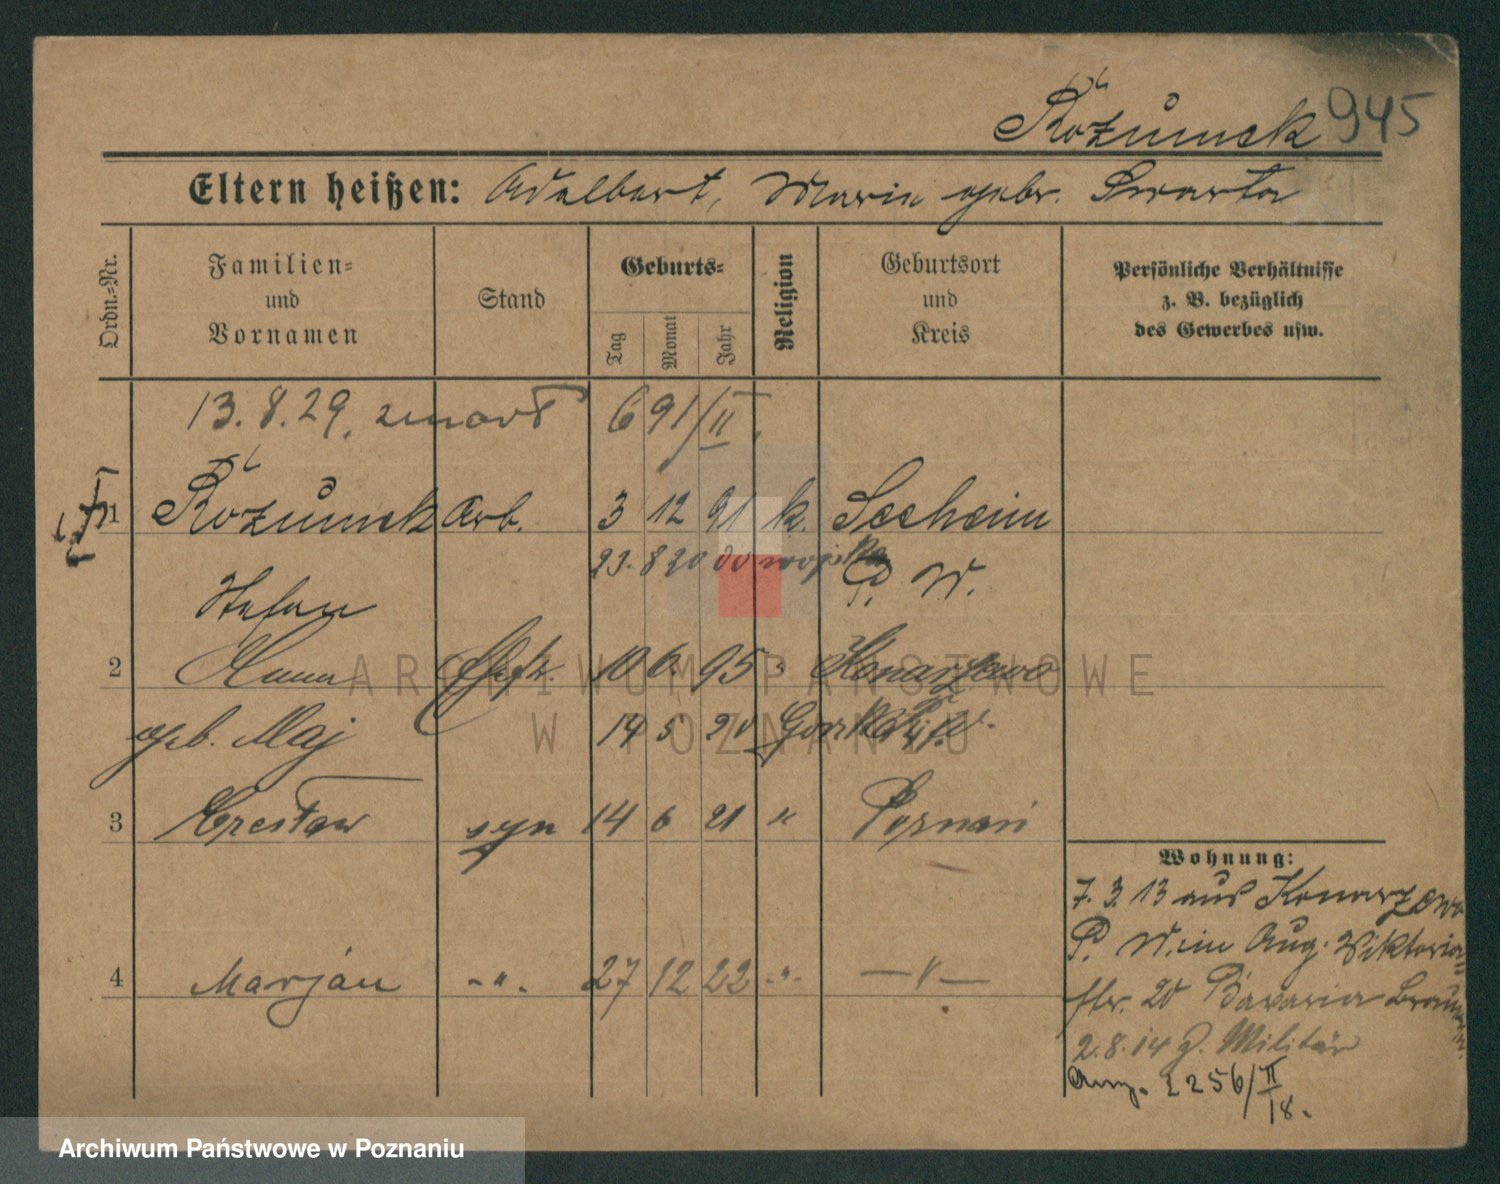 Rożumek 945
Eltern heißen: Adalbert, Marie gebr. Swarta
Ordn.-Nr.
Familien-
und
Vornamen
Stand
Geburts-
Tag
Monat
Jahr
Religion
Geburtsort
und
Kreis
Persönliche Verhältnisse
z. B. bezüglich
des Gewerbes usw.
13.8.29. zmarł 691/II
1 Rożumek Arb. 3 12 91 k. Seeheim
23. 8 20 do wojska P. W.
Stefan
2 Anna Ehefr. 10 6. 95 " Konarzewo
geb. Maj 14 5 20
3 Czesław syn 14 6 21 " Poznań
4 Marjan -"- 27 12 22 -"- —"—
Wohnung:
7. 3. 13 aus Konarzewo
P. W. in Aug. Viktoria=
str. 20 Bavaria Brauerei
2.8.14 z. Militär
Anm. 2256/II
18.
ARCHIWUM PAŃSTWOWE
W POZNANIU
Archiwum Państwowe w Poznaniu